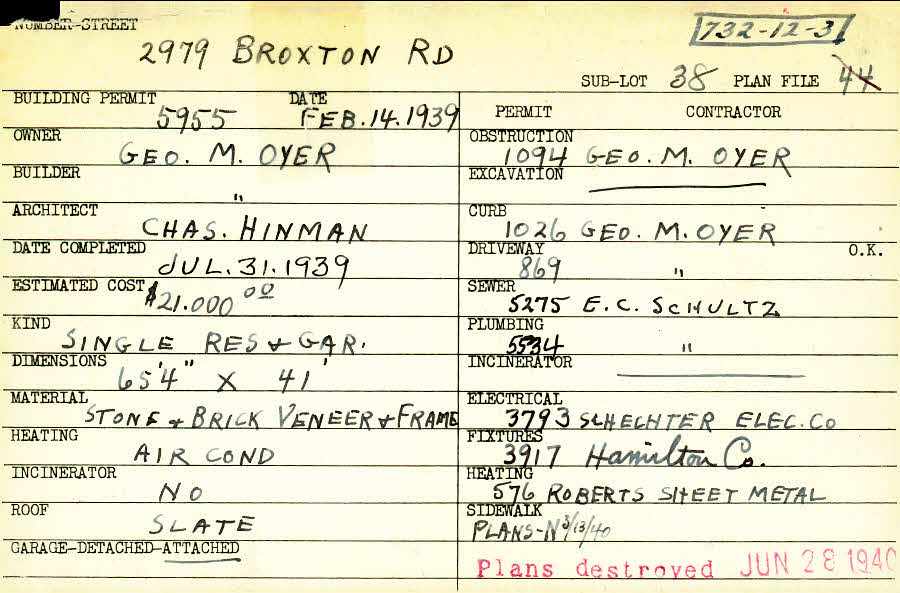 NUMBER-STREET
732-12-3
2979 BROXTON RD
SUB-LOT 38 PLAN FILE 44
BUILDING PERMIT 5955 DATE FEB. 14. 1939
OWNER GEO. M. OYER
BUILDER "
ARCHITECT CHAS. HINMAN
DATE COMPLETED JUL. 31. 1939
ESTIMATED COST $21.000 00
KIND SINGLE RES & GAR.
DIMENSIONS 65'4" X 41'
MATERIAL STONE & BRICK VENEER & FRAME
HEATING AIR COND
INCINERATOR NO
ROOF SLATE
GARAGE-DETACHED-ATTACHED
PERMIT CONTRACTOR
OBSTRUCTION 1094 GEO. M. OYER
EXCAVATION
CURB 1026 GEO. M. OYER
DRIVEWAY 869 " O.K.
SEWER 5275 E.C. SCHULTZ
PLUMBING 5534 "
INCINERATOR
ELECTRICAL 3793 SCHECHTER ELEC. CO
FIXTURES 3917 Hamilton Co.
HEATING 576 ROBERTS SHEET METAL
SIDEWALK
PLANS-N 3/13/40
Plans destroyed JUN 28 1940